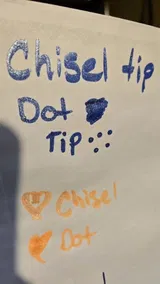 Chisel tip
Dot
Tip
Chisel
Dot